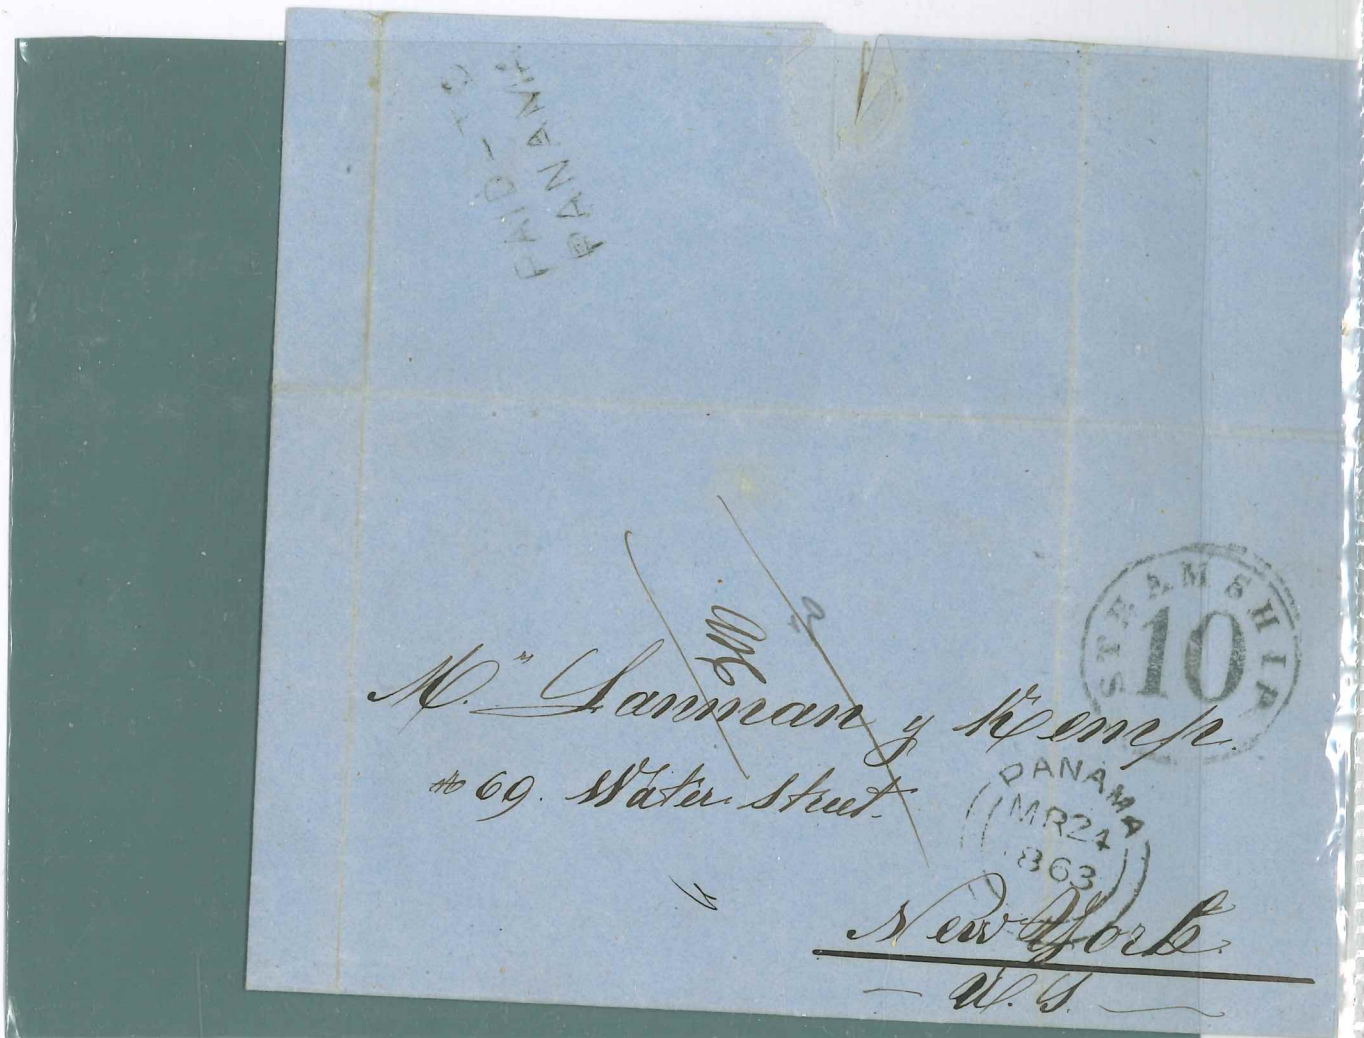 PAID-TO
PANAMA
STEAMSHIP
10
M.rs Lanman y Kemp.
No 69. Water Street.
PANAMA
MR24
1863
New York.
U. S.